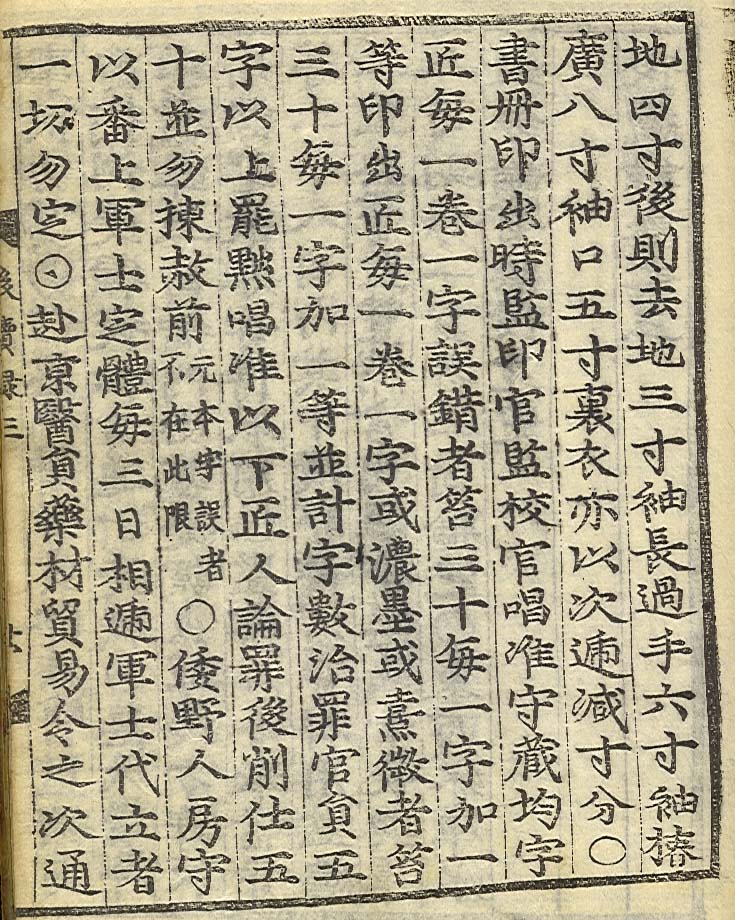 地四寸後則去地三寸袖長過手六寸袖樁
廣八寸袖口五寸裏衣亦以次逓减寸分〇
書册印出時監印官監校官唱准守藏均字
匠每一卷一字誤錯者笞三十每一字加一
等印出匠每一卷一字或濃墨或熹微者笞
三十每一字加一等並計字數治罪官負五
字以上罷黜唱准以下匠人論罪後削仕五
十並勿揀赦前元本字誤者不在此限〇倭野人房守
以番上軍士定體每三日相逓軍士代立者
一切勿定〇赴京醫負藥材貿易令之次通
後續録三